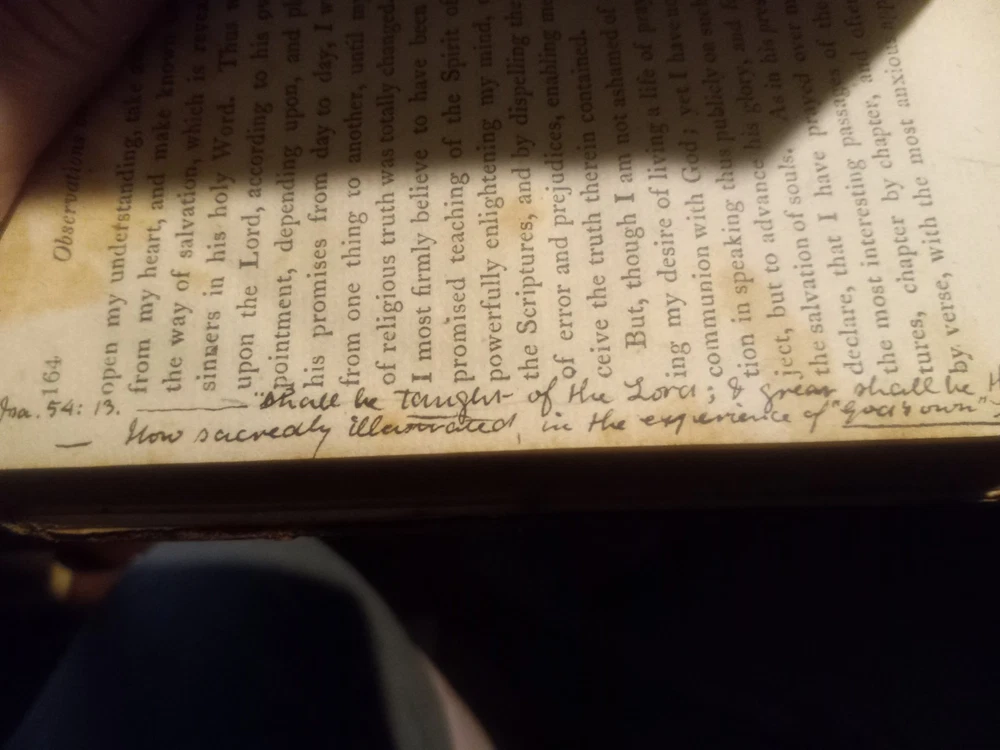 164 Observations
open my understanding, take
from my heart, and make known
the way of salvation, which is
sinners in his holy Word. Thus
upon the Lord, according to his
pointment, depending upon, and
his promises from day to day, I
from one thing to another, until
of religious truth was totally changed.
I most firmly believe to have been
promised teaching of the Spirit of
powerfully enlightening my mind,
the Scriptures, and by dispelling the
of error and prejudices, enabling
ceive the truth therein contained.
But, though I am not ashamed of
ing my desire of living a life of
communion with God; yet I have
tion in speaking thus publicly on such
ject, but to advance his glory, and
the salvation of souls. As in his
declare, that I have prayed over
the most interesting passages of the
tures, chapter by chapter, and often
by verse, with the most anxious
Isa. 54: 13. "shall be taught of the Lord; & great shall be
— How sacredly illustrated, in the experience of "God's own"